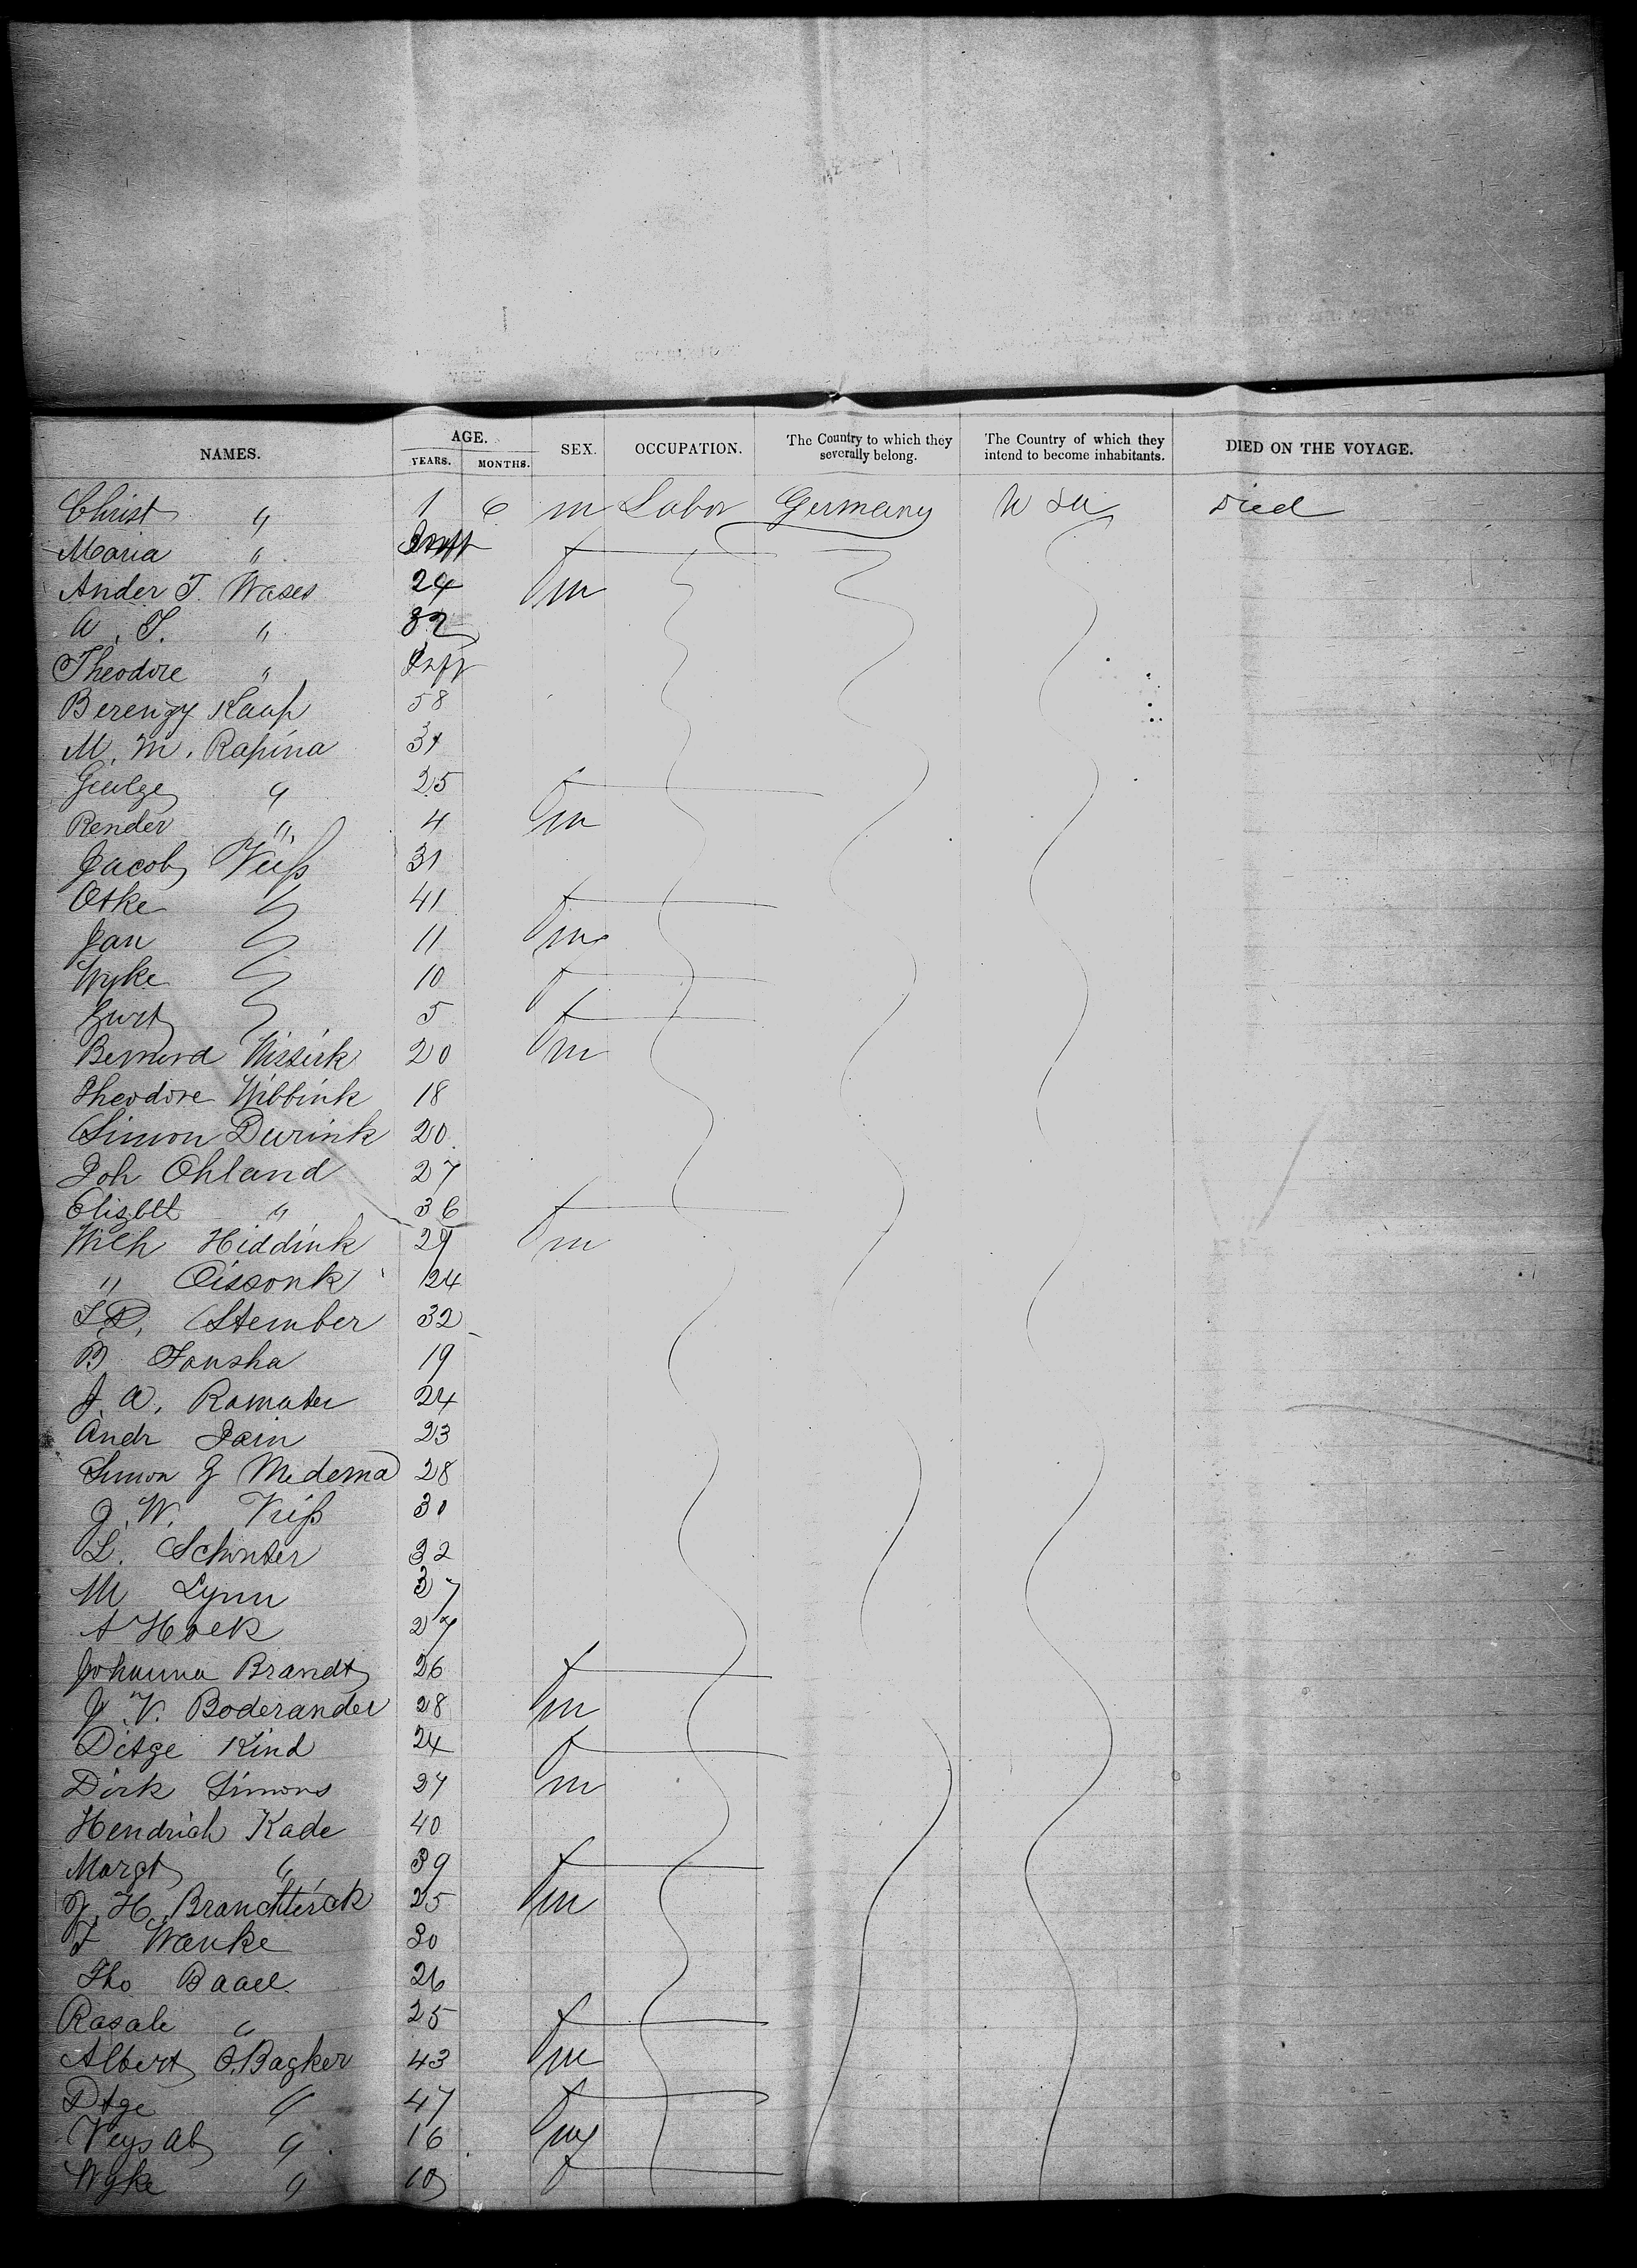 NAMES. AGE. YEARS. MONTHS. SEX. OCCUPATION. The Country to which they severally belong. The Country of which they intend to become inhabitants. DIED ON THE VOYAGE.
Christ " 1 6 m Labor Germany U S A Died
Maria " Inft f
Ander T. Wases 24 m
A. T. " 32
Theodore " Inft
Berengy Kaup 58
M. M. Rapina 31
" 25 f
Render " 4 m
Jacob Veiß 31
Otke " 41 f
Jan " 11 m
Wyke " 10 f
" 5 f
Bernard Wissink 20 m
Theodore Wibbink 18
Simon Durink 20
Joh Ohland 27
Elisbet " 36 f
Wilh Hiddink 29 m
" Cissonk 24
Stember 32
B Fansha 19
J. A. Ramater 24
Andr Jain 23
Simon J Medema 28
J. W. Triß 30
L. Schuster 32
M Lynn 37
A Hoek 27
Johanna Brandt 26 f
J. V. Boderander 28 m
Ditge Kind 24 f
Dirk Simons 27 m
Hendrich Kade 40
Margt " 39 f
J. H. Branchterick 25 m
F Wanke 30
Tho Baael 26
Rasale " 25 f
Albert O. Bagker 43 m
Dtge " 47 f
" 16 m
Wyke " 10 f